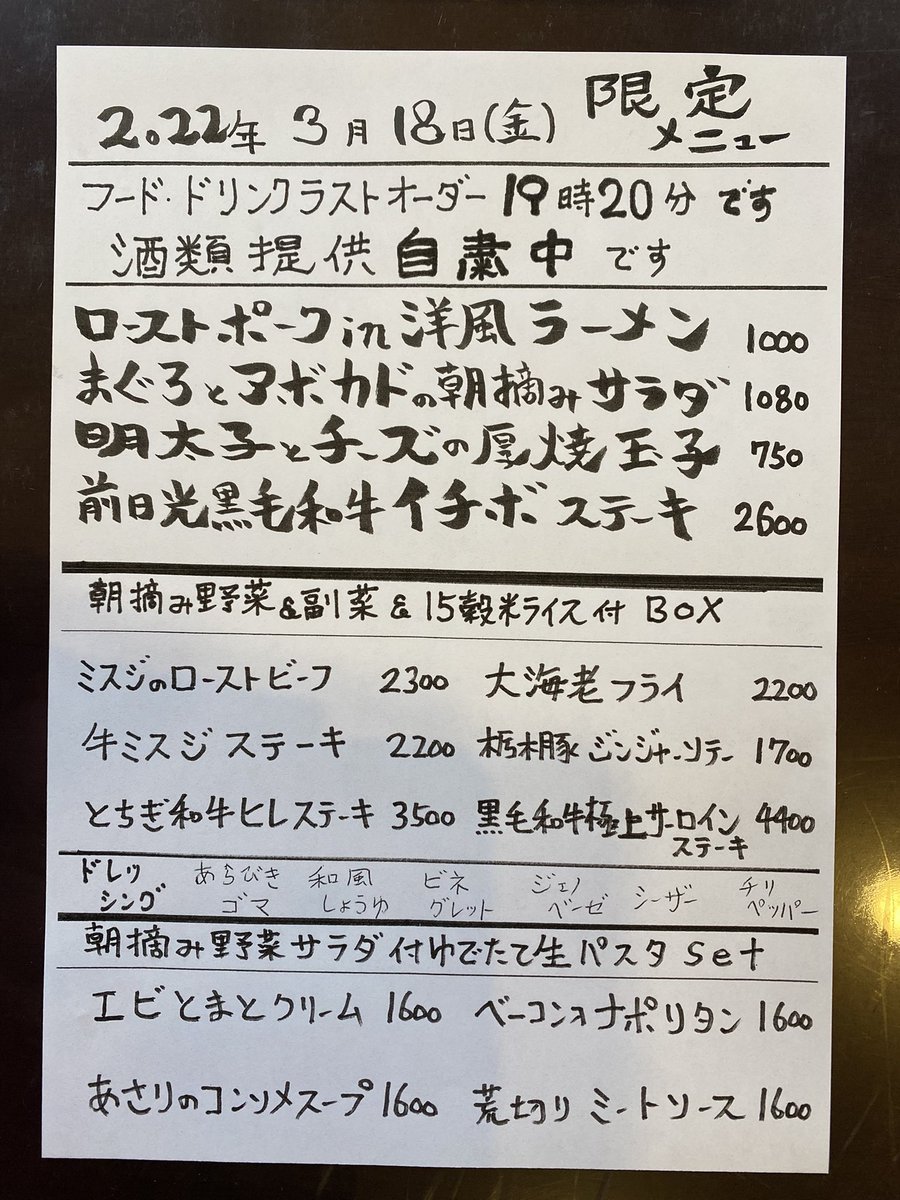 2022年 3月 18日(金) 限定メニュー
フード・ドリンクラストオーダー 19時20分 です
酒類提供 自粛中 です
ローストポークin洋風ラーメン 1000
まぐろとアボカドの朝摘みサラダ 1080
明太子とチーズの厚焼玉子 750
前日光黒毛和牛イチボステーキ 2600
朝摘み野菜&副菜&15穀米ライス付 BOX
ミスジのローストビーフ 2300 大海老フライ 2200
牛ミスジステーキ 2200 栃木豚ジンジャーソテー 1700
とちぎ和牛ヒレステーキ 3500 黒毛和牛極上サーロインステーキ 4400
ドレッシング あらびきゴマ 和風しょうゆ ビネグレット ジェノベーゼ シーザー チリペッパー
朝摘み野菜サラダ付ゆでたて生パスタ Set
エビとまとクリーム 1600 ベーコンナポリタン 1600
あさりのコンソメスープ 1600 荒切りミートソース 1600